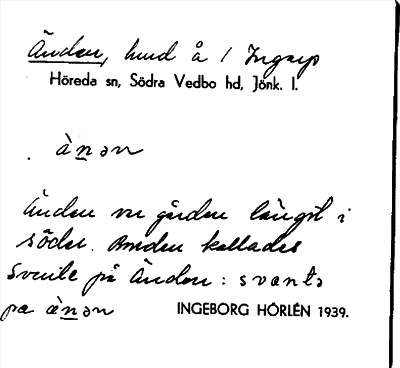 Änden, hmd å / Ingarp
Höreda sn, Södra Vedbo hd, Jönk. l.
ànən
Änden var gården längst i
söder. Bonden kallades
Svente på Änden: svantə
pa ànən INGEBORG HÖRLÉN 1939.